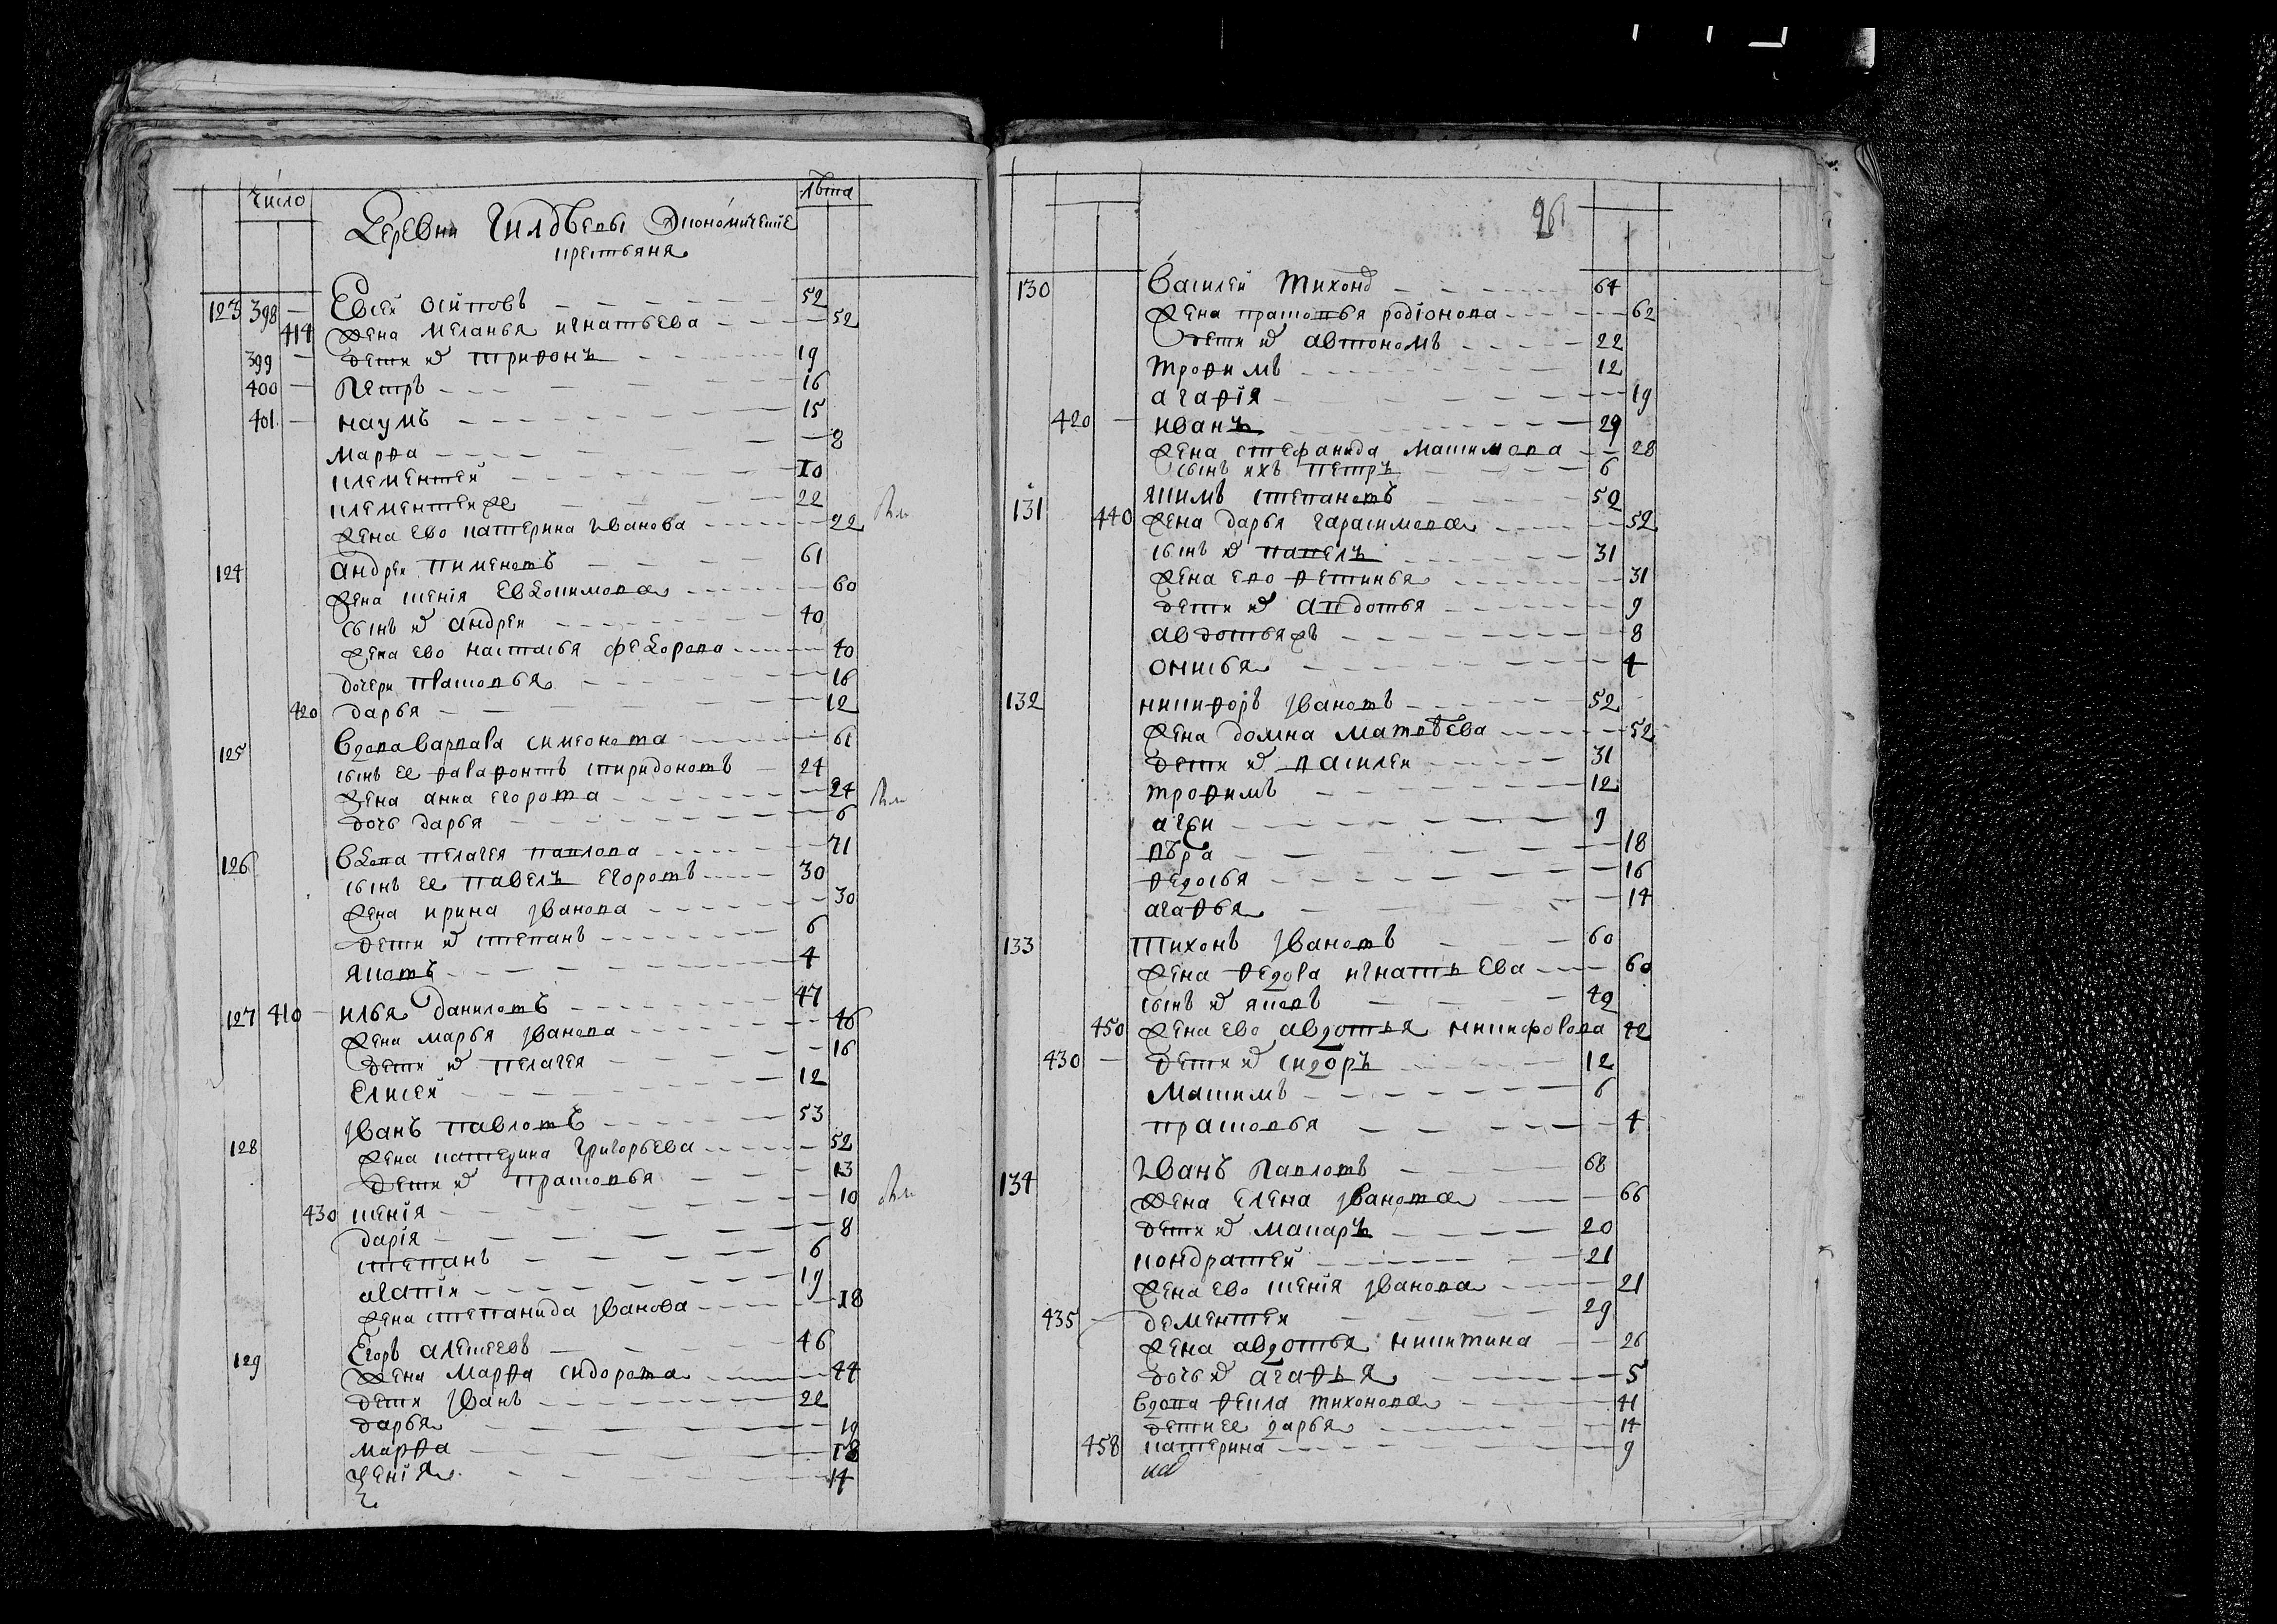 Число
лѣта
Деревни Гилдѣевы Экономические
крестьяня
123 398 — Евсеи осиповъ 52
414 жена меланья игнатьева 52
399 — дети их трифонъ 19
400 — Петръ 16
401 — наумъ 15
марфа 8
клементеи 10
клементеи же 22
жена ево катерина иванова 22
124 андреи пименовъ 61
жена ксения евдокимова 60
сынъ их андреи 40
жена ево настасья федорова 40
дочери прасковья 16
420 дарья 12
125 вдова варвара симеонова 61
сынъ ее фарафонтъ спиридоновъ 24
жена анна егорова 24
дочь дарья 6
126 вдова пелагея павлова 71
сынъ ее павелъ егоровъ 30
жена ирина иванова 30
дети их степанъ 6
яковъ 4
127 410 — илья даниловъ 47
жена марья иванова 46
дети их пелагея 16
елисеи 12
128 иванъ павловъ 53
жена катерина григорьева 52
дети их прасковья 13
430 ксенія 10
дарія 8
степанъ 6
19
жена степанида иванова 18
129 Егоръ алексеевъ 46
жена марфа сидорова 44
дети иванъ 22
дарья 19
марфа 18
14
261
130 Василеи тихонов 64
жена прасковья родіонова 62
дети их автономъ 22
трофимъ 12
агафія 19
420 — иванъ 29
жена стефанида максимова 28
сынъ ихъ петръ 6
131 якимъ степановъ 52
440 жена дарья гарасимова 52
сынъ их павелъ 31
жена ево фетинья 31
дети их авдотья 9
авдотья жъ 8
4
132 никифоръ ивановъ 52
жена домна матвѣева 52
дети их василеи 31
трофимъ 12
агеи 9
вѣра 18
федосья 16
агафья 14
133 тихонъ ивановъ 60
жена федора игнатьева 60
сынъ их яковъ 42
450 жена ево авдотья никифорова 42
430 — дети их сидоръ 12
максимъ 6
прасковья 4
134 иванъ павловъ 68
жена елена иванова 66
дети их макаръ 20
кондратеи 21
жена ево ксенія иванова 21
435 дементеи 29
жена авдотья никитина 26
дочь их агафья 5
вдова фекла тихонова 41
дети ее дарья 14
458 катерина 9